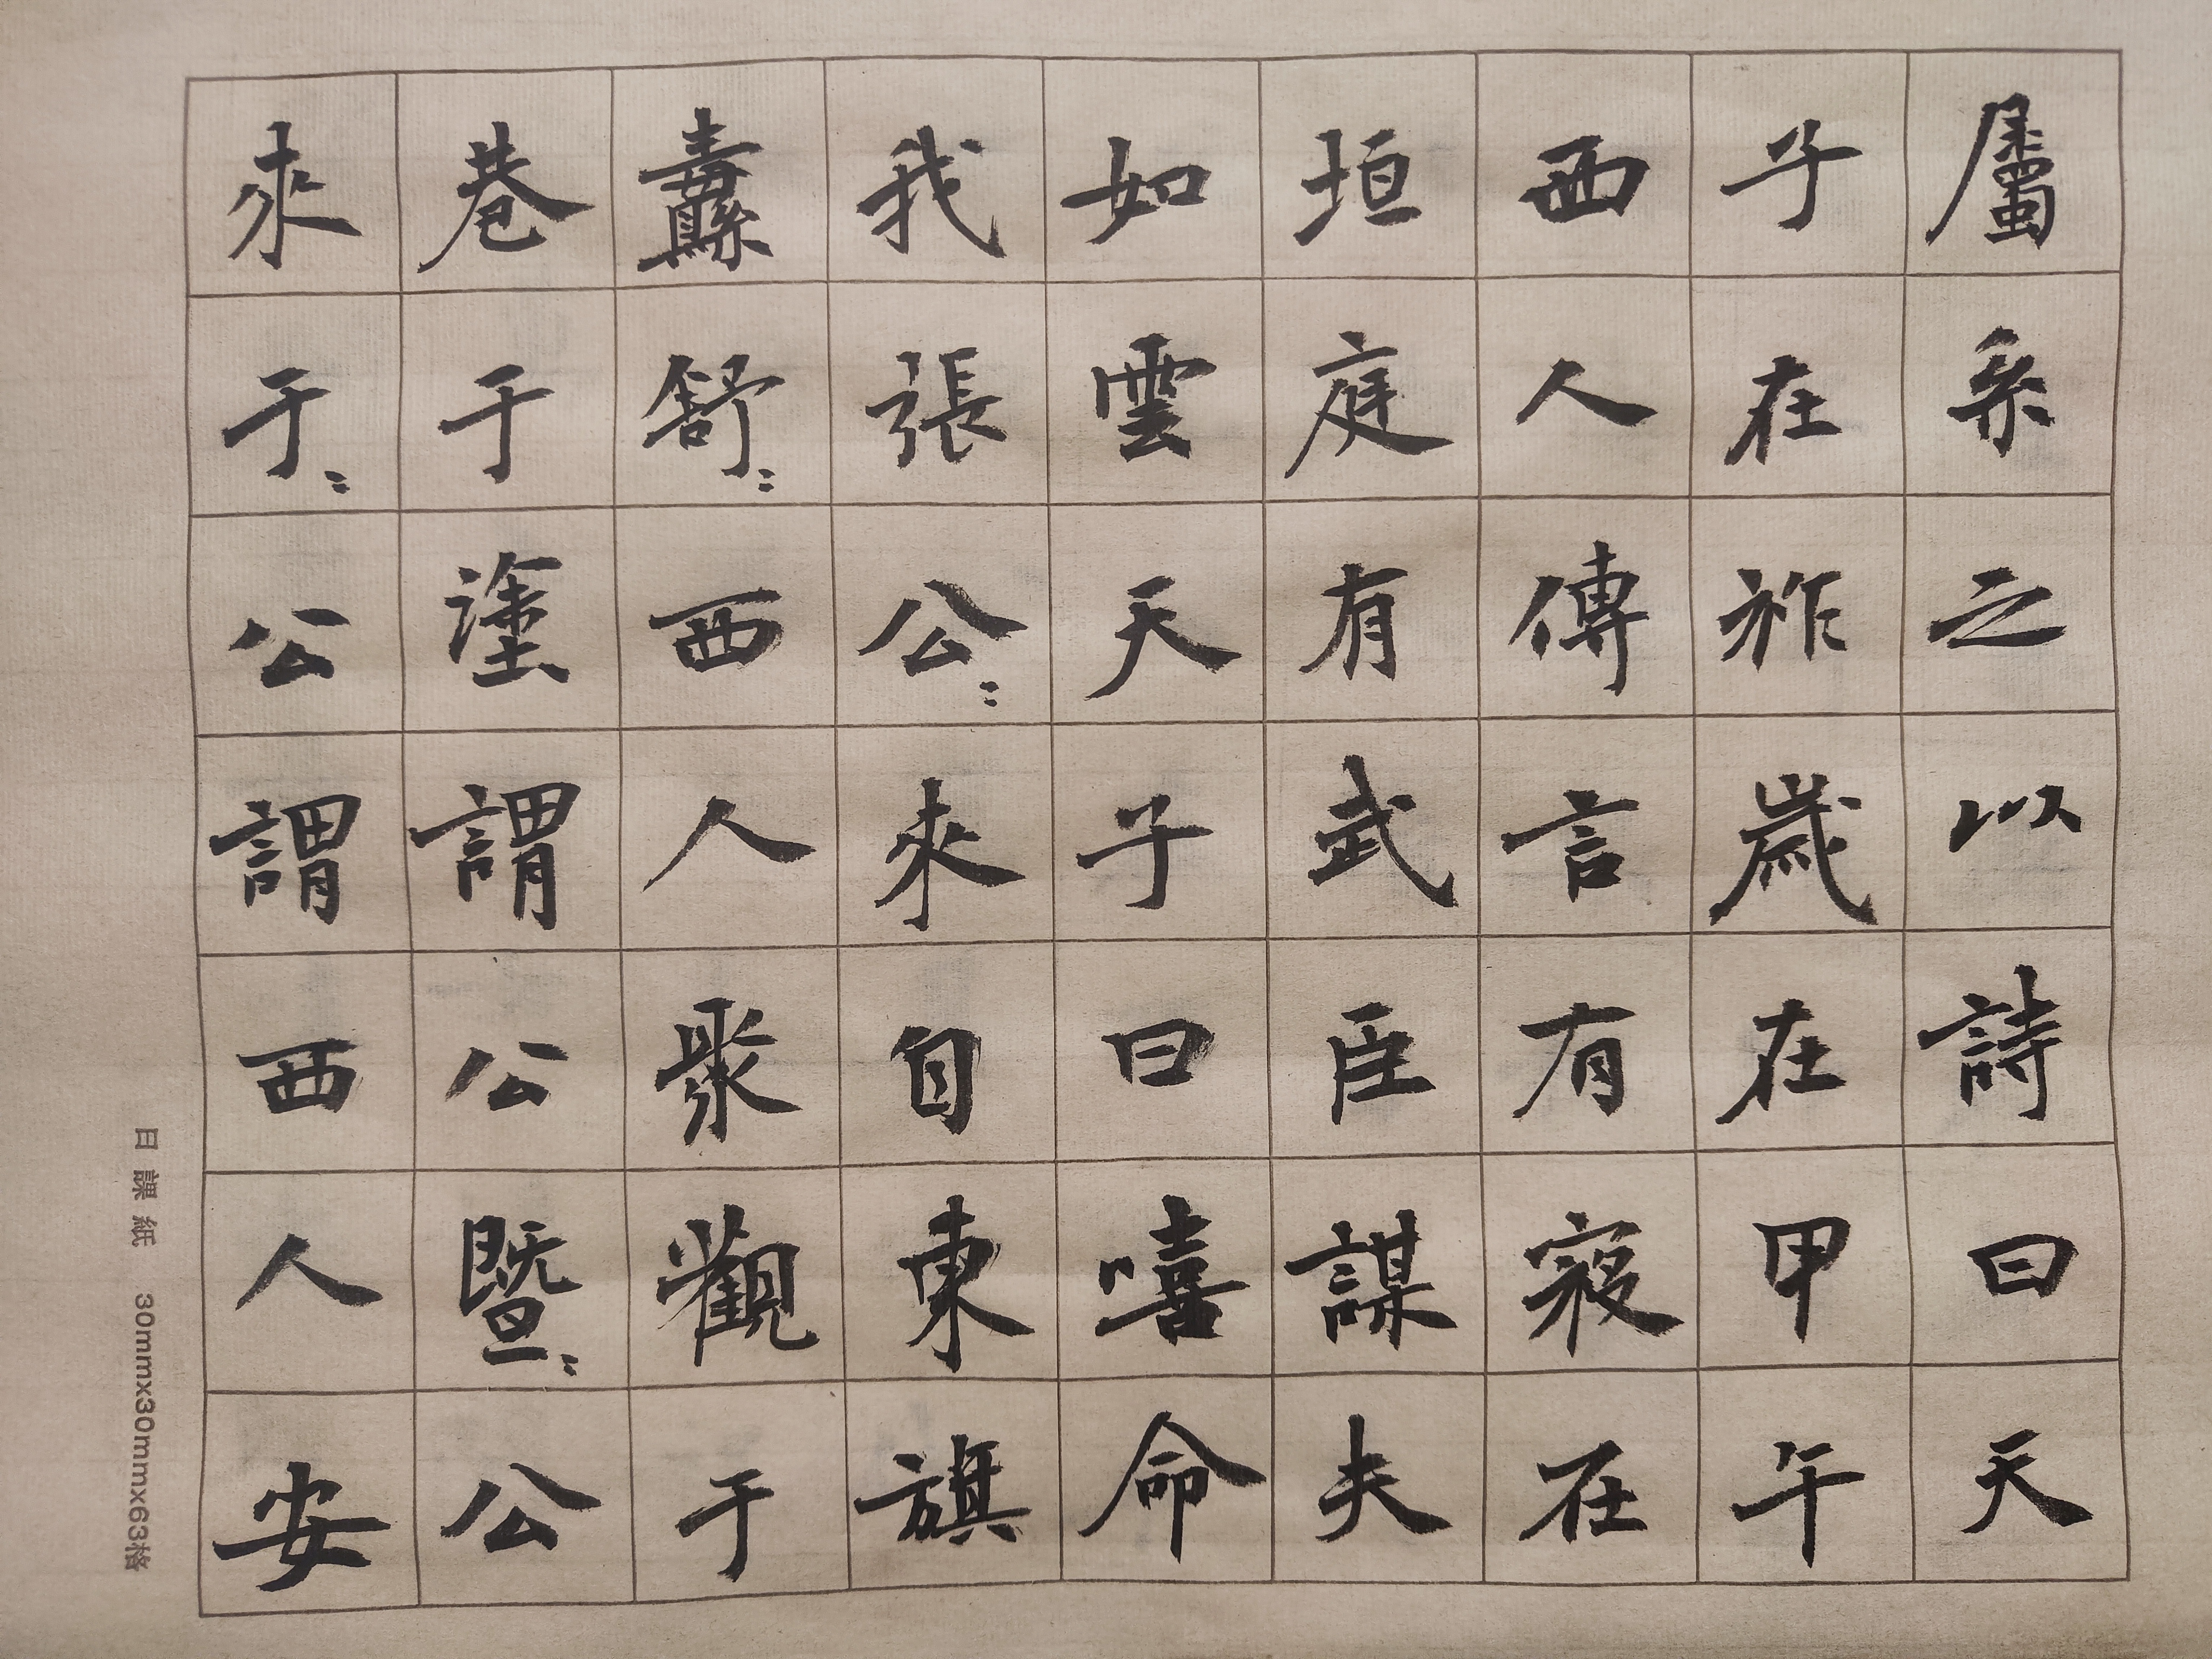 屬系之以詩曰天
子在祚歲在甲午
西人傳言有寇在
垣庭有武臣謀夫
如雲天子曰嘻命
我張公〻來自東旗
纛舒〻西人聚觀于
巷于塗謂公暨〻公
來于〻公謂西人安
日課紙 30mmx30mmx63格